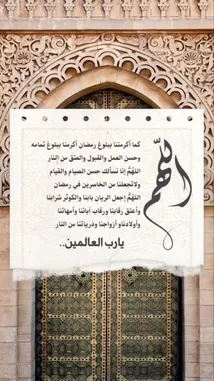 اللهم
كما أكرمتنا ببلوغ رمضان أكرمنا ببلوغ تمامه
وحسن العمل والقبول والعتق من النار
اللهم إنا نسألك حسن الصيام والقيام
ولاتجعلنا من الخاسرين في رمضان
اللهم إجعل الريان بابنا والكوثر شرابنا
وأعتق رقابنا ورقاب آبائنا وأمهاتنا
وأولادنا و أزواجنا وذرياتنا من النار
يارب العالمين..